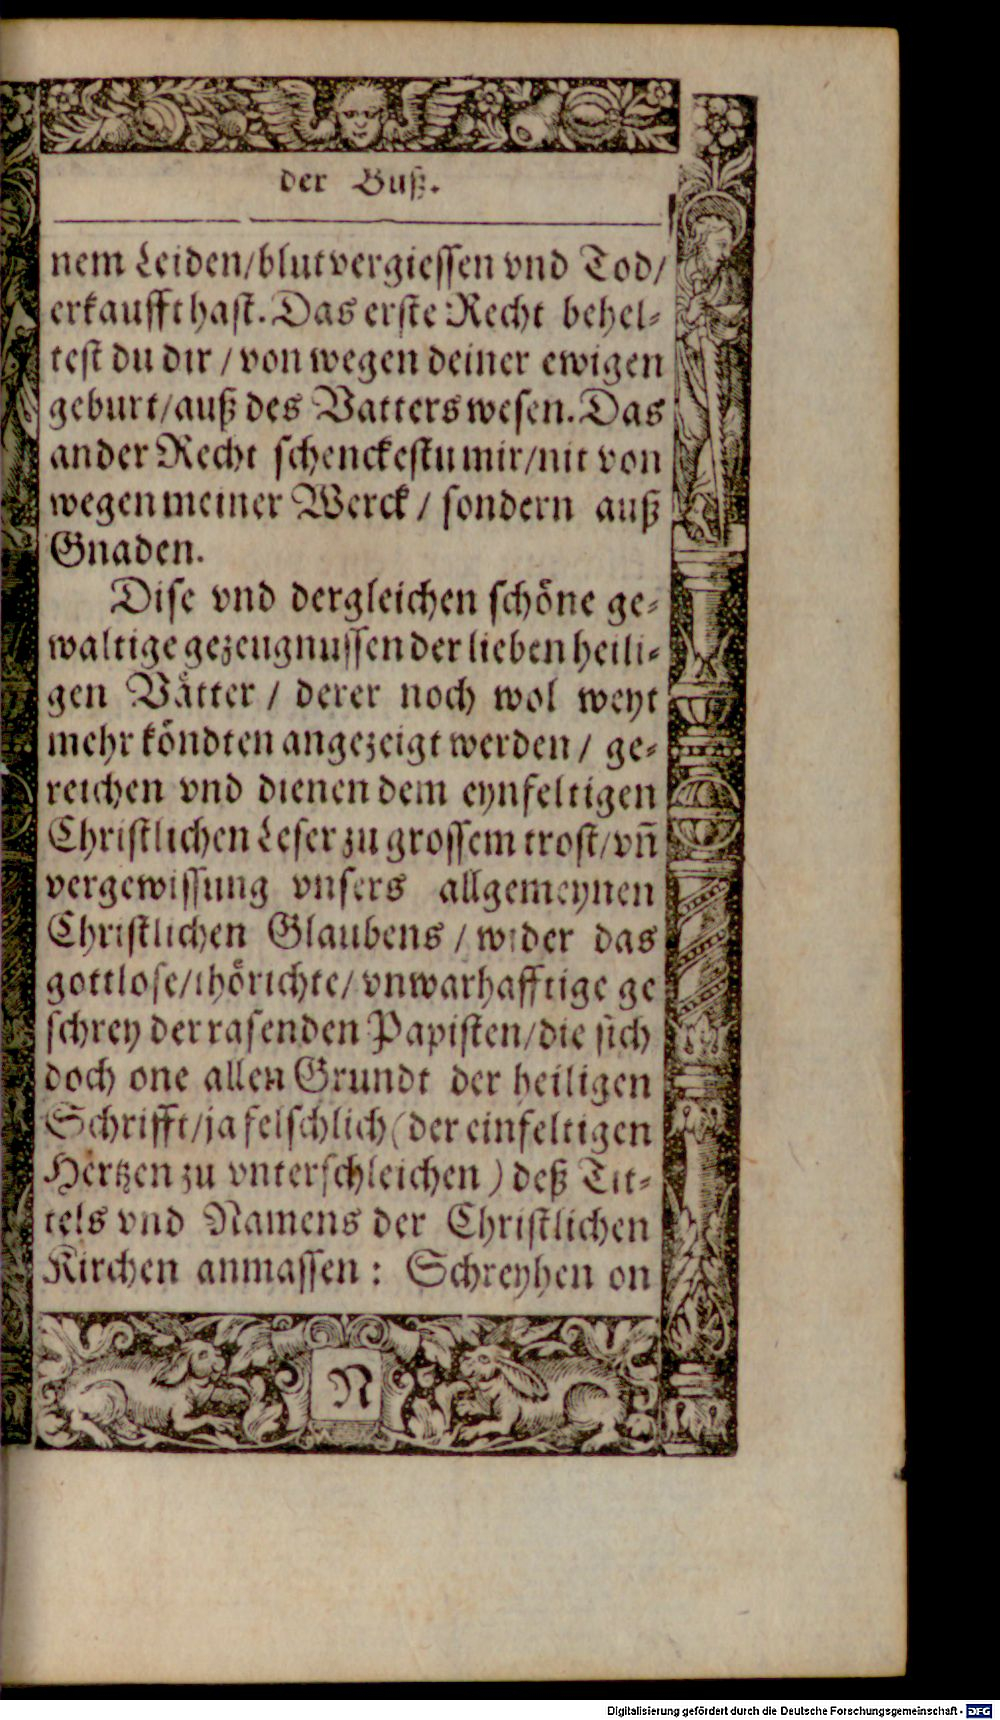 der Buß.
nem Leiden/blutvergiessen vnd Tod/
erkaufft hast. Das erste Recht behel⸗
test du dir / von wegen deiner ewigen
geburt/auß des Vatters wesen. Das
ander Recht schenckestu mir/nit von
wegen meiner Werck / sondern auß
Gnaden.
Dise vnd dergleichen schöne ge⸗
waltige gezeugnussen der lieben heili⸗
gen Vätter / derer noch wol weyt
mehr köndten angezeigt werden / ge⸗
reichen vnd dienen dem eynfeltigen
Christlichen Leser zu grossem trost/vn̄
vergewissung vnsers allgemeynen
Christlichen Glaubens / wider das
gottlose/thörichte/vnwarhafftige ge
schrey der rasenden Papisten/die sich
doch one allen Grundt der heiligen
Schrifft/ja felschlich (der einfeltigen
Hertzen zu vnterschleichen) deß Tit⸗
tels vnd Namens der Christlichen
Kirchen anmassen : Schreyhen on
N
Digitalisierung gefördert durch die Deutsche Forschungsgemeinschaft - DFG